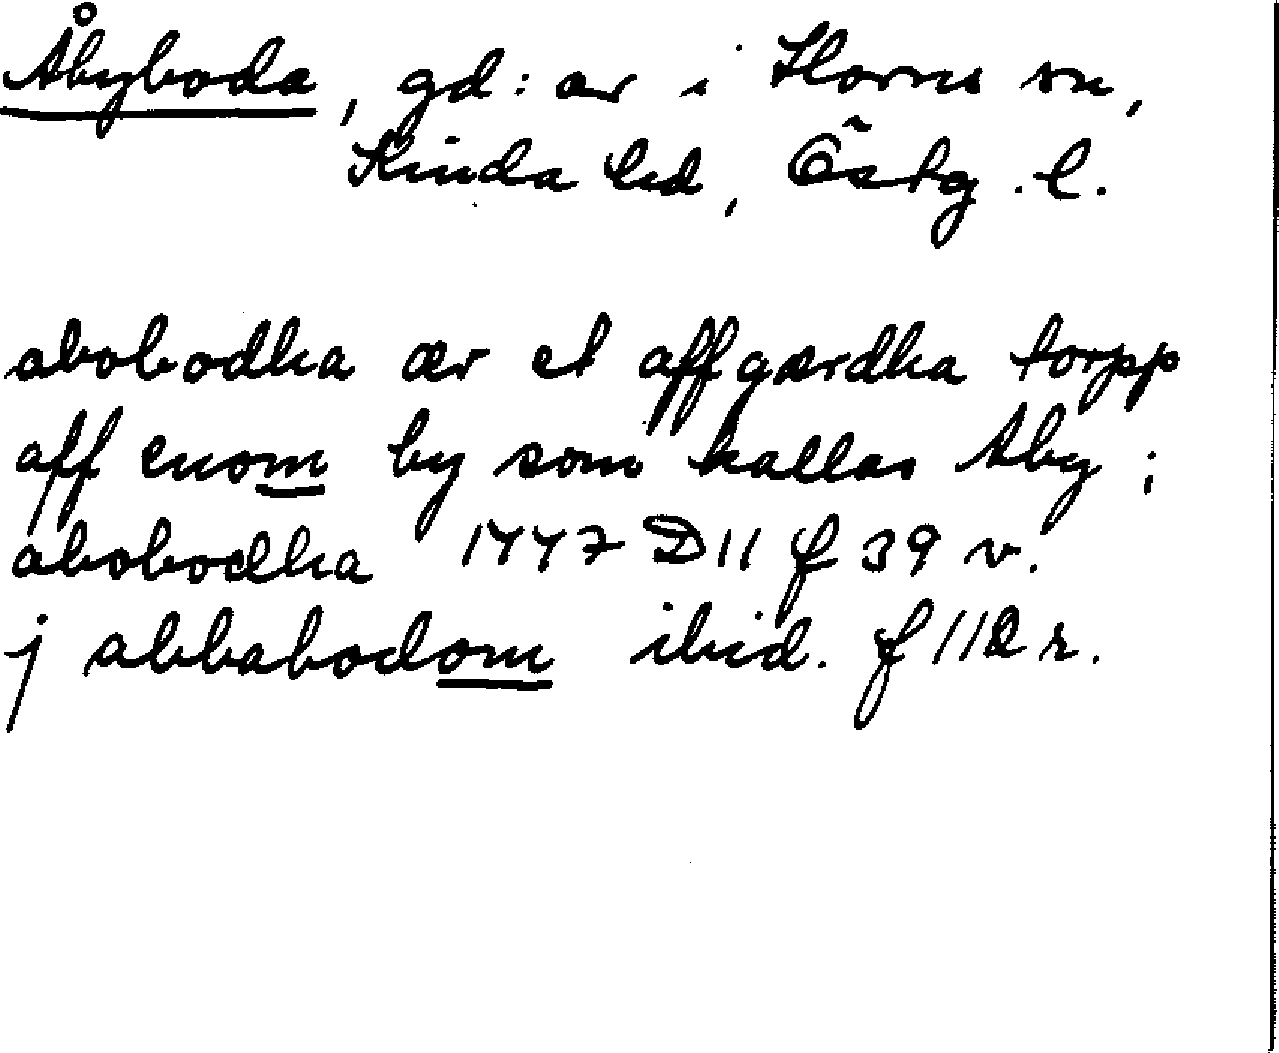 Åbyboda, gd: ar i Horns sn,
Kinda hd, Östg. l.
abobodha ær et affgærdha torpp
aff enom by som kallas Aby ;
abobodha 1447 D11 f 39 v.
j abbabodom ibid. f 112 r.